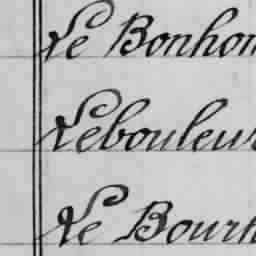 Le Bonhom
Lebouleur
Le Bourn